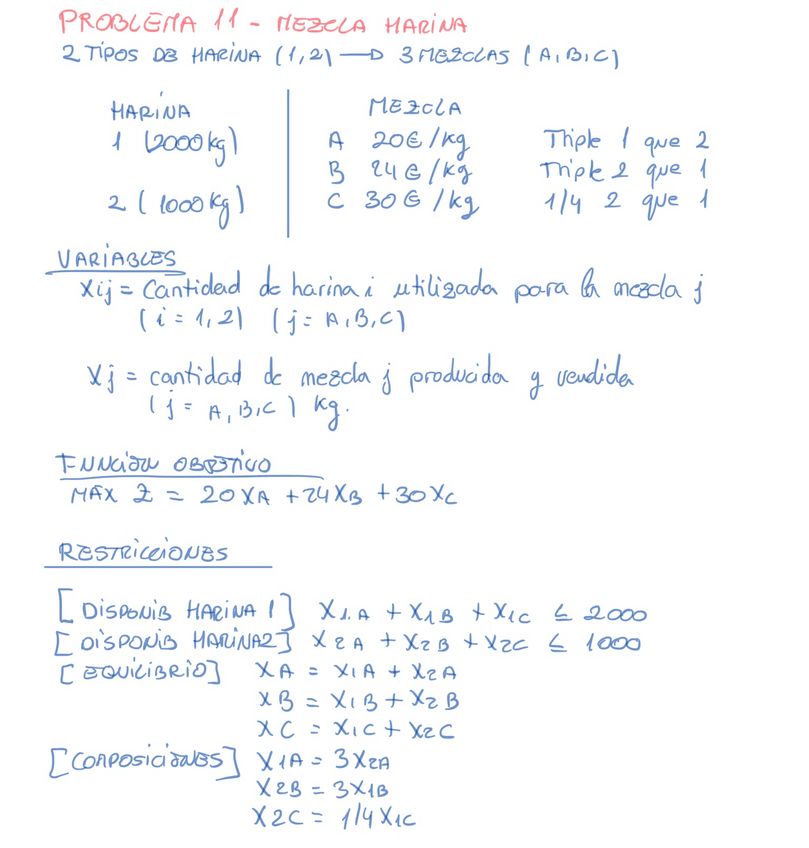 PROBLEMA 11 - MEZCLA HARINA
2 TIPOS DE HARINA (1,2) → 3 MEZCLAS (A,B,C)
HARINA
1 (2000kg)
2 (1000kg)
MEZCLA
A 20€/kg Triple 1 que 2
B 24€/kg Triple 2 que 1
C 30€/kg 1/4 2 que 1
VARIABLES
Xij = Cantidad de harina i utilizada para la mezcla j
(i = 1,2) (j = A,B,C)
Xj = cantidad de mezcla j producida y vendida
(j = A,B,C) kg.
FUNCIÓN OBJETIVO
MÁX Z = 20XA + 24XB + 30XC
RESTRICCIONES
[DISPONIB HARINA 1] X1A + X1B + X1C ≤ 2000
[DISPONIB HARINA2] X2A + X2B + X2C ≤ 1000
[EQUILIBRIO] XA = X1A + X2A
XB = X1B + X2B
XC = X1C + X2C
[COMPOSICIONES] X1A = 3X2A
X2B = 3X1B
X2C = 1/4 X1C